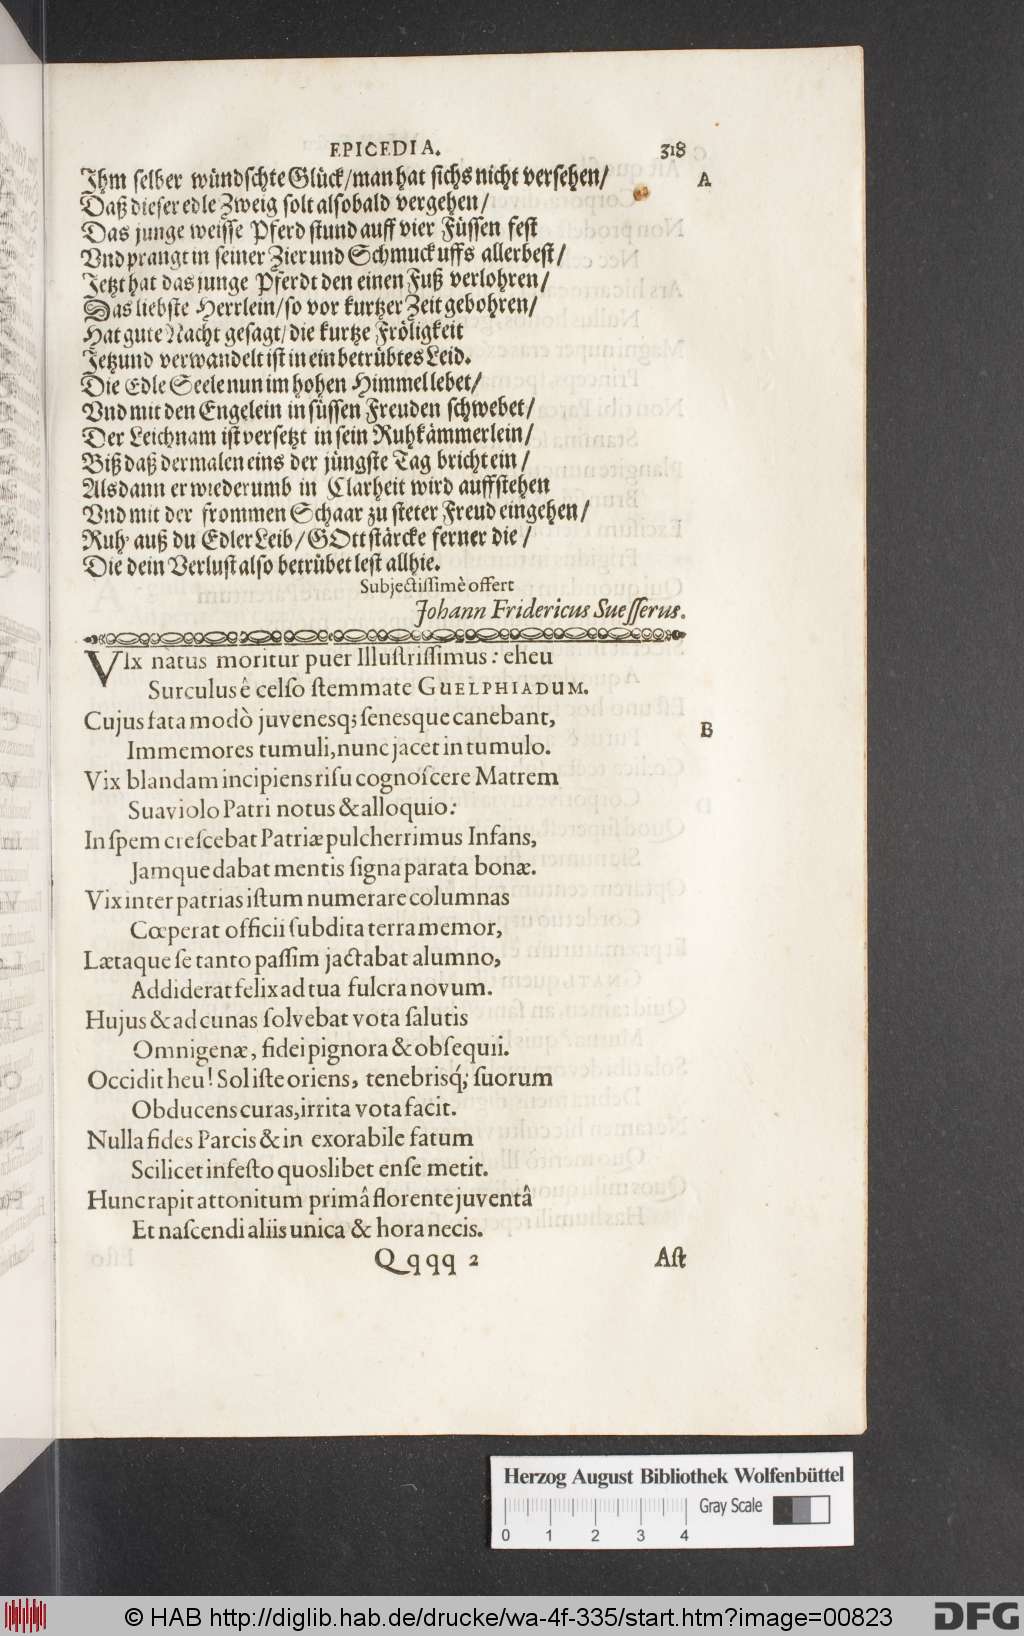 EPICEDIA. 318
Ihm selber wündschte Glück/man hat sichs nicht versehen/ A
Daß dieser edle Zweig solt alsobald vergehen/
Das junge weisse Pferd stund auff vier Füssen fest
Vnd prangt in seiner Zier und Schmuck uffs allerbest/
Jetzt hat das junge Pferdt den einen Fuß verlohren/
Das liebste Herrlein/so vor kurtzer Zeit gebohren/
Hat gute Nacht gesagt/die kurtze Fröligkeit
Jetzund verwandelt ist in ein betrübtes Leid.
Die Edle Seele nun im hohen Himmel lebet/
Vnd mit den Engelein in süssen Freuden schwebet/
Der Leichnam ist versetzt in sein Ruhkämmerlein/
Biß daß dermalen eins der jüngste Tag bricht ein/
Alsdann er wiederumb in Clarheit wird aufffstehen
Vnd mit der frommen Schaar zu steter Freud eingehen/
Ruh auß du Edler Leib/GOtt stärcke ferner die/
Die dein Verlust also betrübet lest allhie.
Subjectiſſimè offert
Johann Fridericus Sueſſerus.
VIx natus moritur puer Illuſtriſſimus: eheu
Surculus ê celſo ſtemmate GUELPHIADUM.
Cujus fata modò juvenesq; ſenesque canebant,
B
Immemores tumuli, nunc jacet in tumulo.
Vix blandam incipiens riſu cognoſcere Matrem
Suaviolo Patri notus & alloquio:
In ſpem creſcebat Patriæ pulcherrimus Infans,
Jamque dabat mentis ſigna parata bonæ.
Vix inter patrias iſtum numerare columnas
Cœperat officii ſubdita terra memor,
Lætaque ſe tanto paſſim jactabat alumno,
Addiderat felix ad tua fulcra novum.
Hujus & ad cunas ſolvebat vota ſalutis
Omnigenæ, fidei pignora & obſequii.
Occidit heu! Sol iſte oriens, tenebrisq́; ſuorum
Obducens curas, irrita vota facit.
Nulla fides Parcis & in exorabile fatum
Scilicet infeſto quoslibet enſe metit.
Hunc rapit attonitum primâ florente juventâ
Et naſcendi aliis unica & hora necis.
Qqqq 2 Aſt
Herzog August Bibliothek Wolfenbüttel
Gray Scale
0 1 2 3 4
© HAB http://diglib.hab.de/drucke/wa-4f-335/start.htm?image=00823 DFG